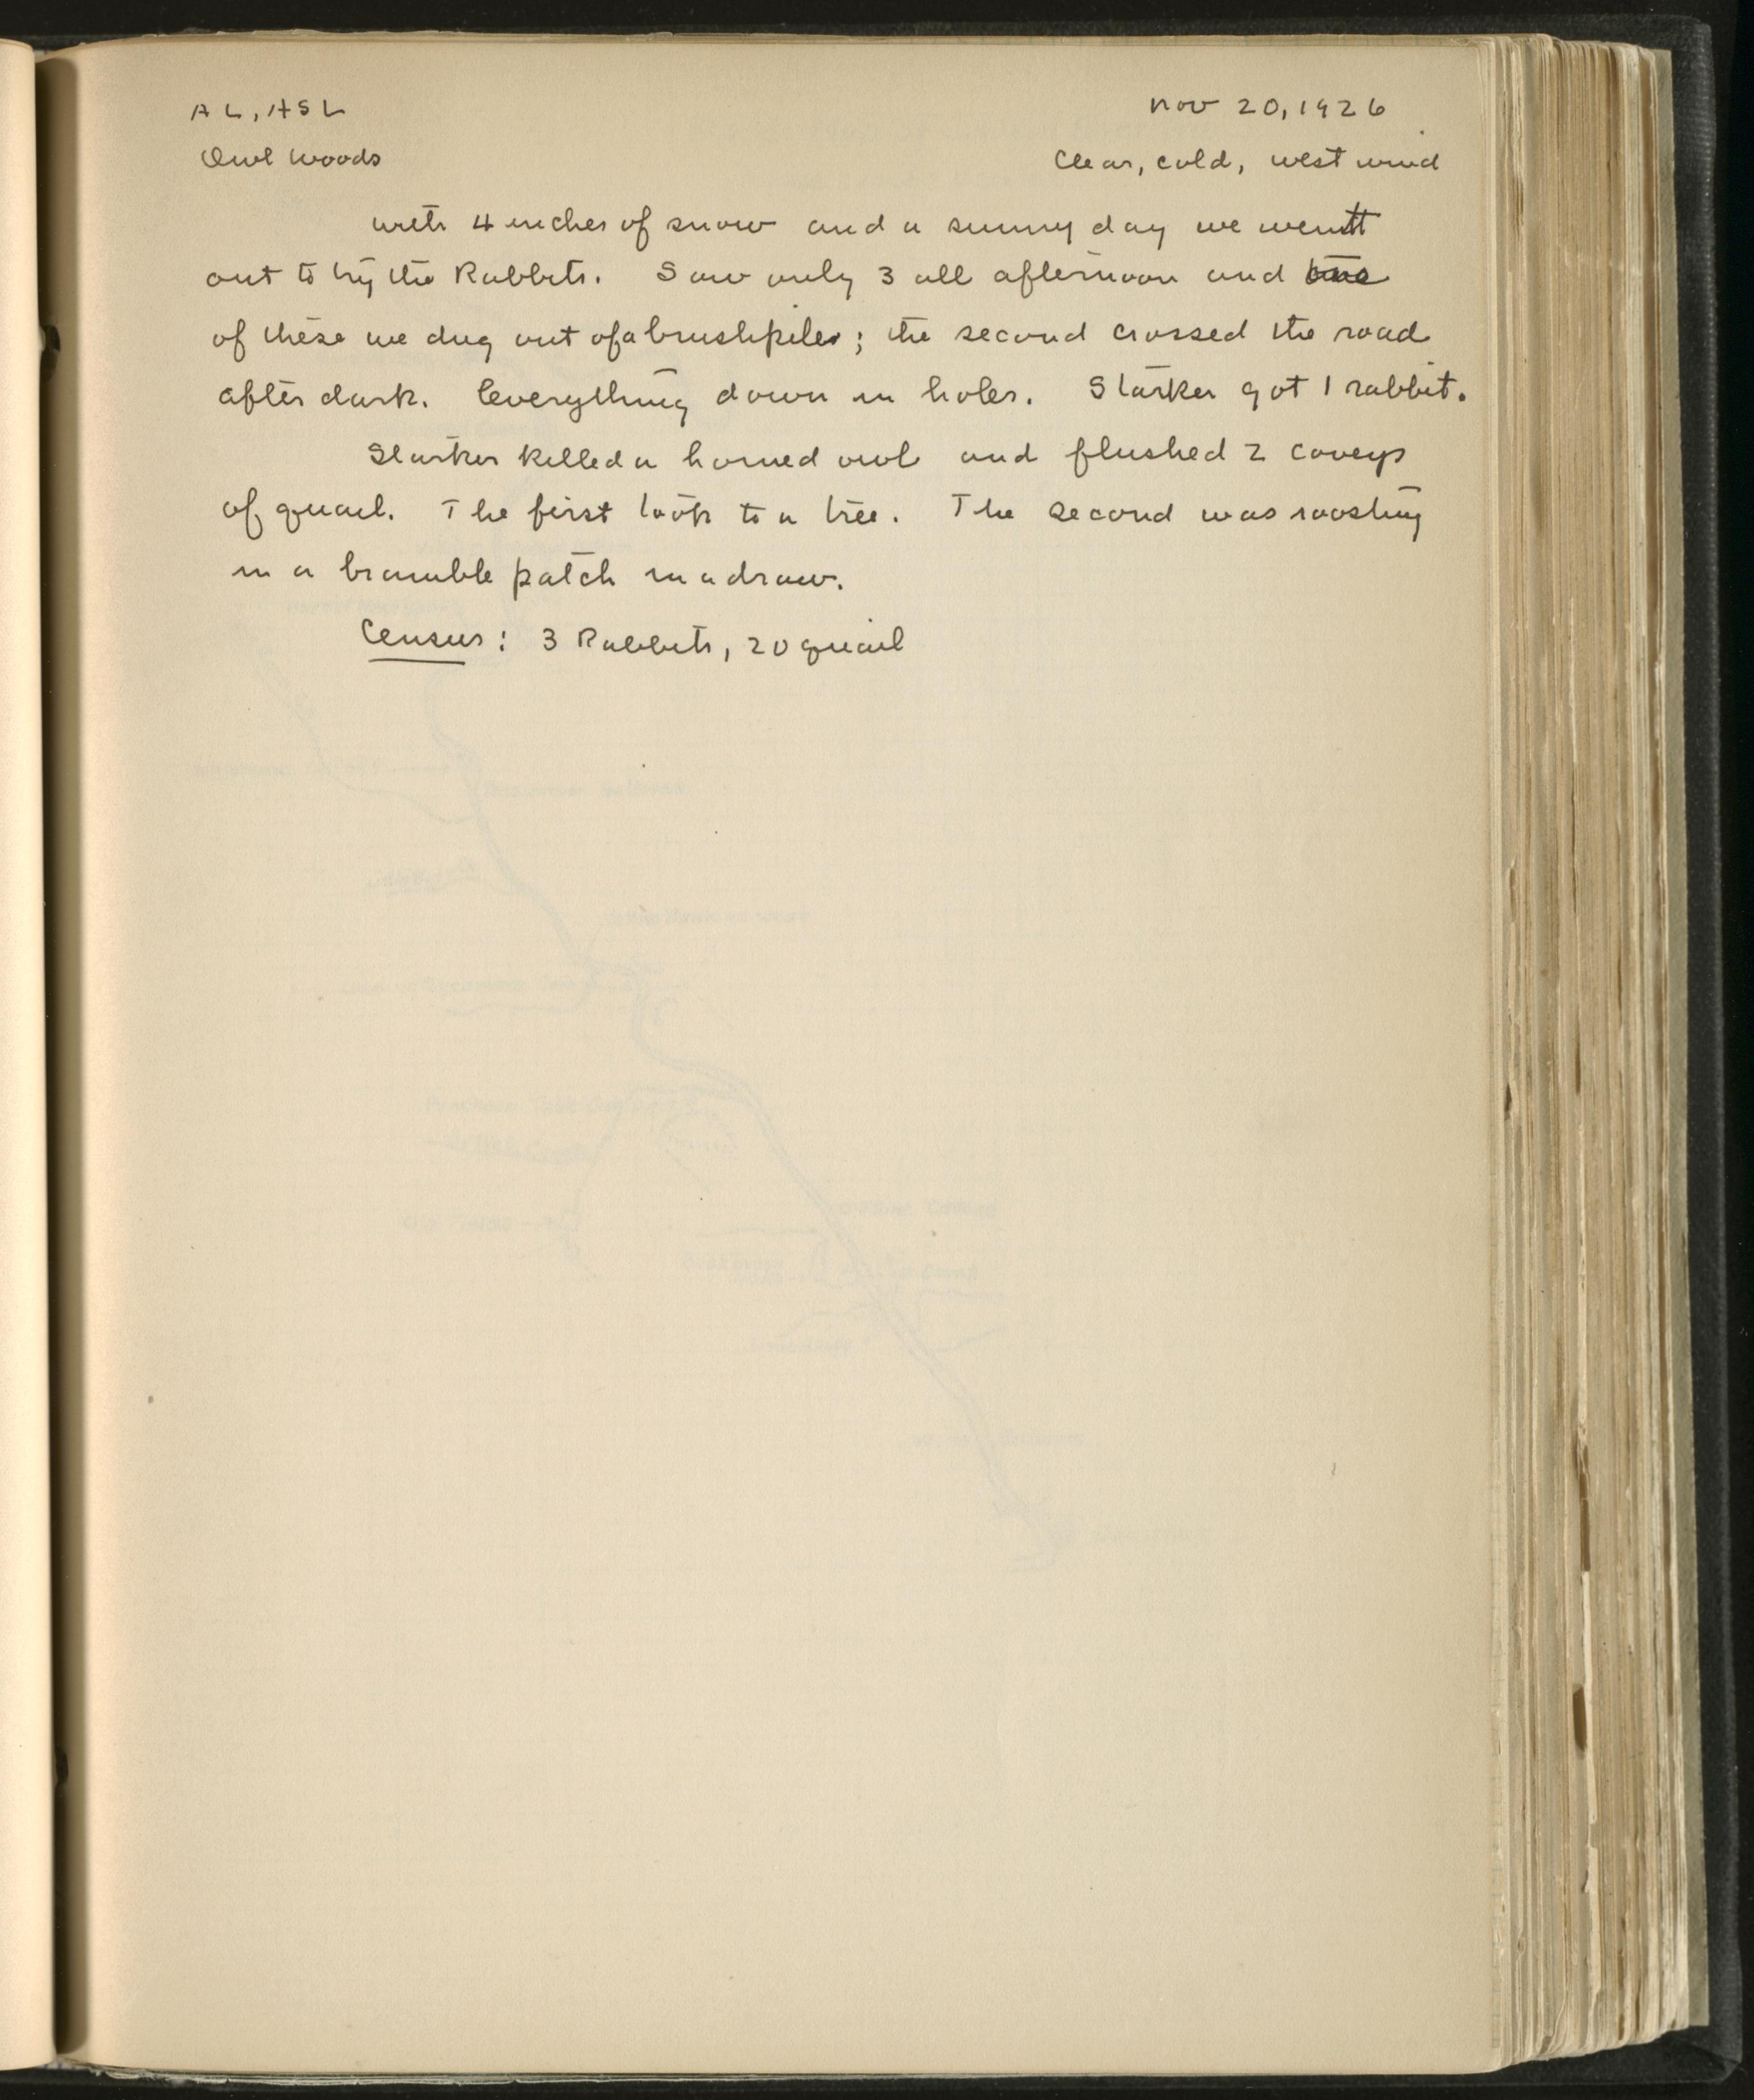 AL, ASL
Nov 20, 1926
Owl Woods
Clear, cold, west wind
With 4 inches of snow and a sunny day we went
out to try the Rabbits. Saw only 3 all afternoon and one
of these we dug out of a brushpile; the second crossed the road
after dark. Everything down in holes. Starker got 1 rabbit.
Starker killed a horned owl and flushed 2 coveys
of quail. The first took to a tree. The second was roosting
in a bramble patch in a draw.
Census: 3 Rabbits, 20 quail